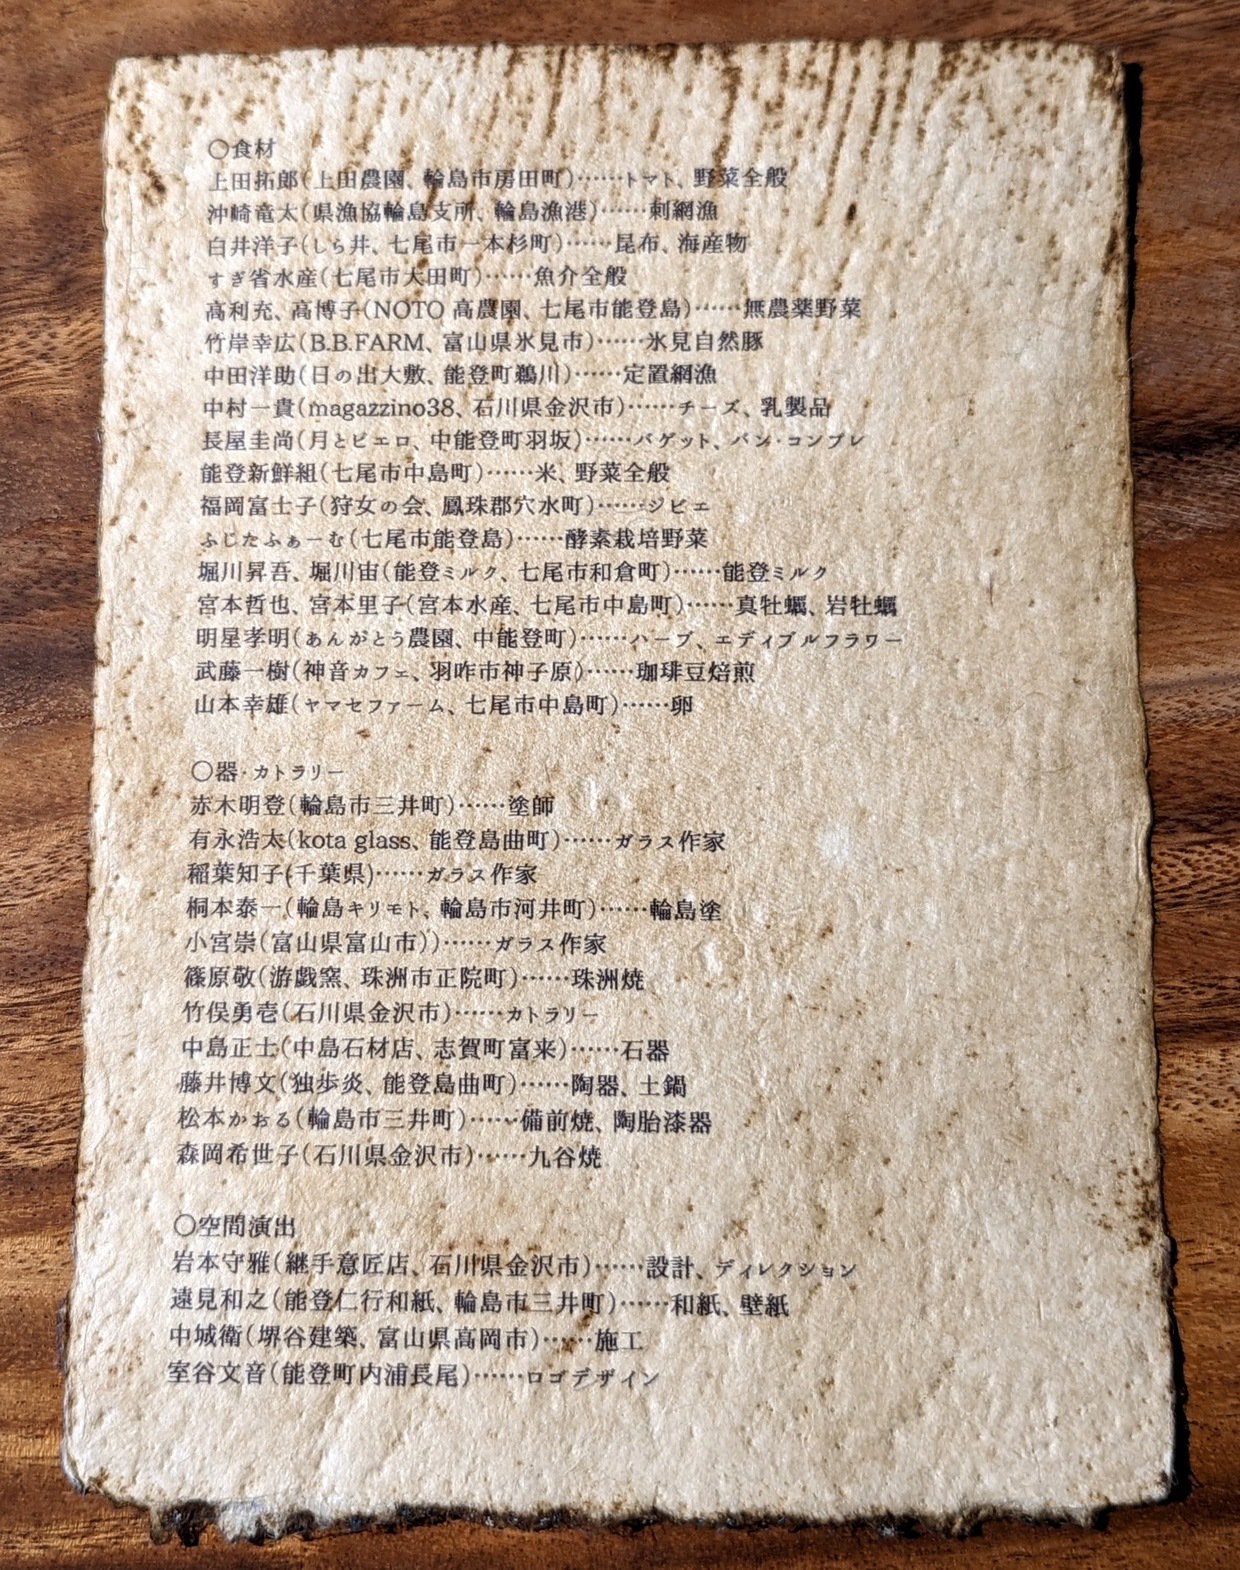 〇食材
上田拓郎(上田農園、輪島市房田町)……トマト、野菜全般
沖崎竜太(県漁協輪島支所、輪島漁港)……刺網漁
白井洋子(しら井、七尾市一本杉町)……昆布、海産物
すぎ省水産(七尾市大田町)……魚介全般
高利充、高博子(NOTO 高農園、七尾市能登島)……無農薬野菜
竹岸幸広(B.B.FARM、富山県氷見市)……氷見自然豚
中田洋助(日の出大敷、能登町鵜川)……定置網漁
中村一貴(magazzino38、石川県金沢市)……チーズ、乳製品
長屋圭尚(月とピエロ、中能登町羽坂)……バゲット、パン・コンプレ
能登新鮮組(七尾市中島町)……米、野菜全般
福岡富士子(狩女の会、鳳珠郡穴水町)……ジビエ
ふじたふぁーむ(七尾市能登島)……酵素栽培野菜
堀川昇吾、堀川宙(能登ミルク、七尾市和倉町)……能登ミルク
宮本哲也、宮本里子(宮本水産、七尾市中島町)……真牡蠣、岩牡蠣
明星孝明(あんがとう農園、中能登町)……ハーブ、エディブルフラワー
武藤一樹(神音カフェ、羽咋市神子原)……珈琲豆焙煎
山本幸雄(ヤマセファーム、七尾市中島町)……卵
〇器・カトラリー
赤木明登(輪島市三井町)……塗師
有永浩太(kota glass、能登島曲町)……ガラス作家
稲葉知子(千葉県)……ガラス作家
桐本泰一(輪島キリモト、輪島市河井町)……輪島塗
小宮崇(富山県富山市))……ガラス作家
篠原敬(游戯窯、珠洲市正院町)……珠洲焼
竹俣勇壱(石川県金沢市)……カトラリー
中島正士(中島石材店、志賀町富来)……石器
藤井博文(独歩炎、能登島曲町)……陶器、土鍋
松本かおる(輪島市三井町)……備前焼、陶胎漆器
森岡希世子(石川県金沢市)……九谷焼
〇空間演出
岩本守雅(継手意匠店、石川県金沢市)……設計、ディレクション
遠見和之(能登仁行和紙、輪島市三井町)……和紙、壁紙
中城衛(堺谷建築、富山県高岡市)……施工
室谷文音(能登町内浦長尾)……ロゴデザイン